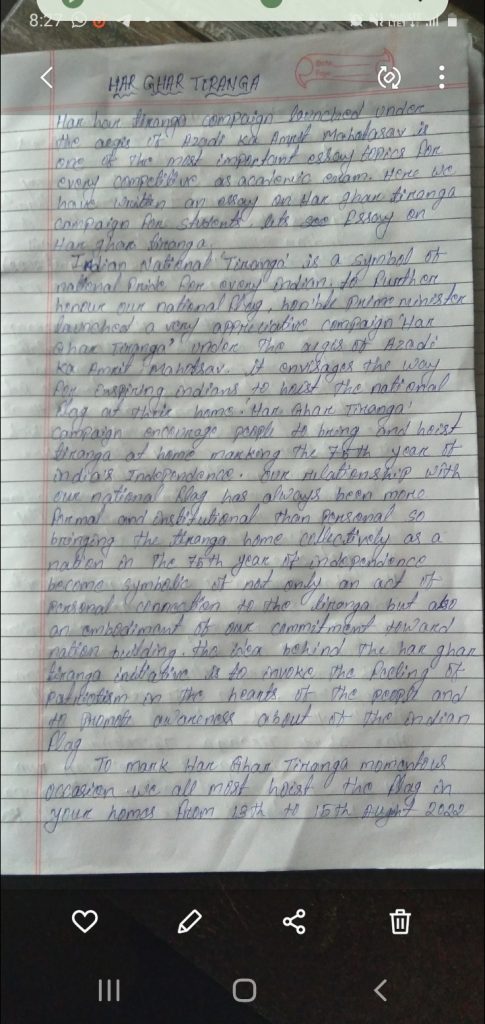 8:27
HAR GHAR TIRANGA
Har har tiranga campaign launched under
the aegis of Azadi Ka Amrit Mahotasav is
one of the most important essay topics for
every competitive as academic exam. Here we
have written an essay on Har ghar tiranga
campaign for students. lets see Essay on
Har ghar tiranga.
Indian National 'Tiranga' is a symbol of
national pride for every Indian. to further
honour our national flag, hon'ble prime minister
launched a very appreciative campaign 'Har
Ghar Tiranga' under the aegis of Azadi
Ka Amrit Mahotsav. it envisages the way
for inspiring indians to hoist the national
flag at their home. 'Har Ghar Tiranga'
campaign encourage people to bring and hoist
tiranga at home marking the 75th year of
india's Independence. our relationship with
our national flag has always been more
formal and institutional than personal so
bringing the tiranga home collectively as a
nation in the 75th year of independence
become symbolic of not only an act of
personal connection to the tiranga but also
an embodiment of our commitment toward
nation building. the idea behind the har ghar
tiranga initiative is to invoke the feeling of
patriotism in the hearts of the people and
to promote awareness about of the indian
flag
To mark Har Ghar Tiranga momentous
occasion we all mist hoist the flag in
your homes from 13th to 15th August 2022